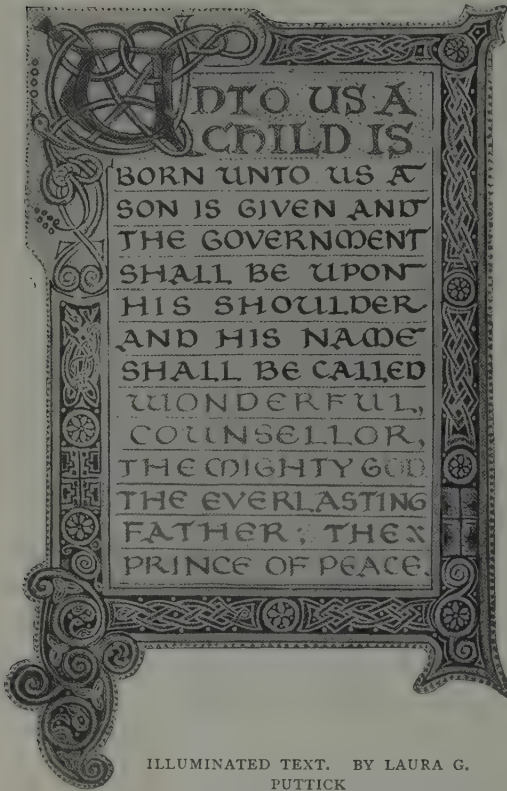 UNTO US A
CHILD IS
BORN UNTO US A
SON IS GIVEN AND
THE GOVERNMENT
SHALL BE UPON
HIS SHOULDER
AND HIS NAME
SHALL BE CALLED
WONDERFUL,
COUNSELLOR,
THE MIGHTY GOD
THE EVERLASTING
FATHER; THE
PRINCE OF PEACE.
ILLUMINATED TEXT. BY LAURA G.
PUTTICK